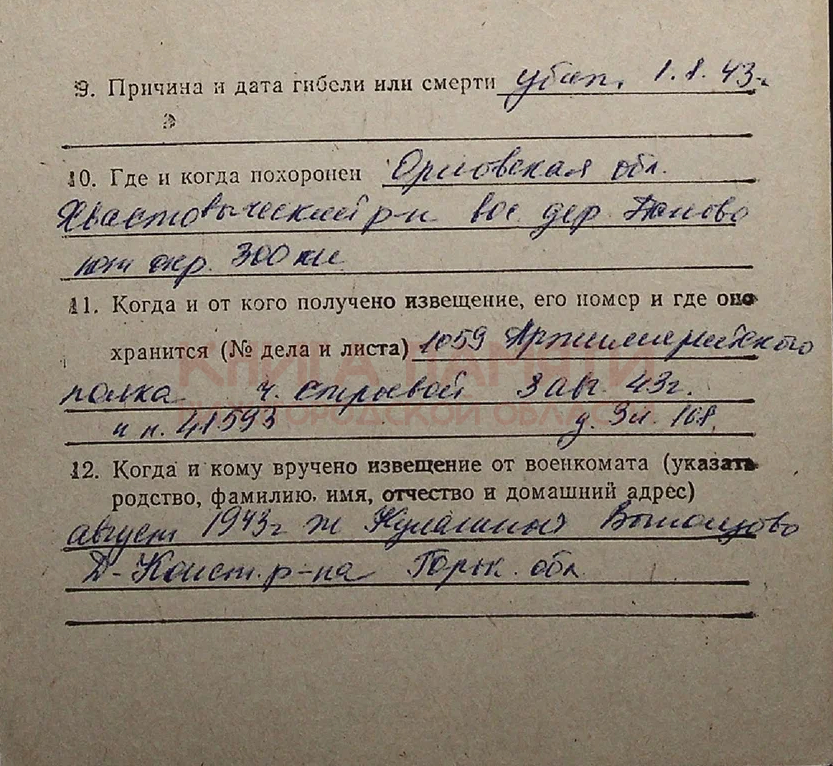 9. Причина и дата гибели или смерти убит. 1.8.43г
10. Где и когда похоронен Орловская обл.
Хвастовический р-н вос дер. Паново
юж окр. 300 км
11. Когда и от кого получено извещение, его номер и где оно
хранится (№ дела и листа) 1059 Артиллерийского
полка ч. строевой 3 авг. 43г.
и н. 41593 д. 3 л. 168.
КНИГА ПАМЯТИ
НИЖЕГОРОДСКОЙ ОБЛАСТИ
12. Когда и кому вручено извещение от военкомата (указать
родство, фамилию, имя, отчество и домашний адрес)
август 1943г ж
Д-Конст. р-на Горьк. обл